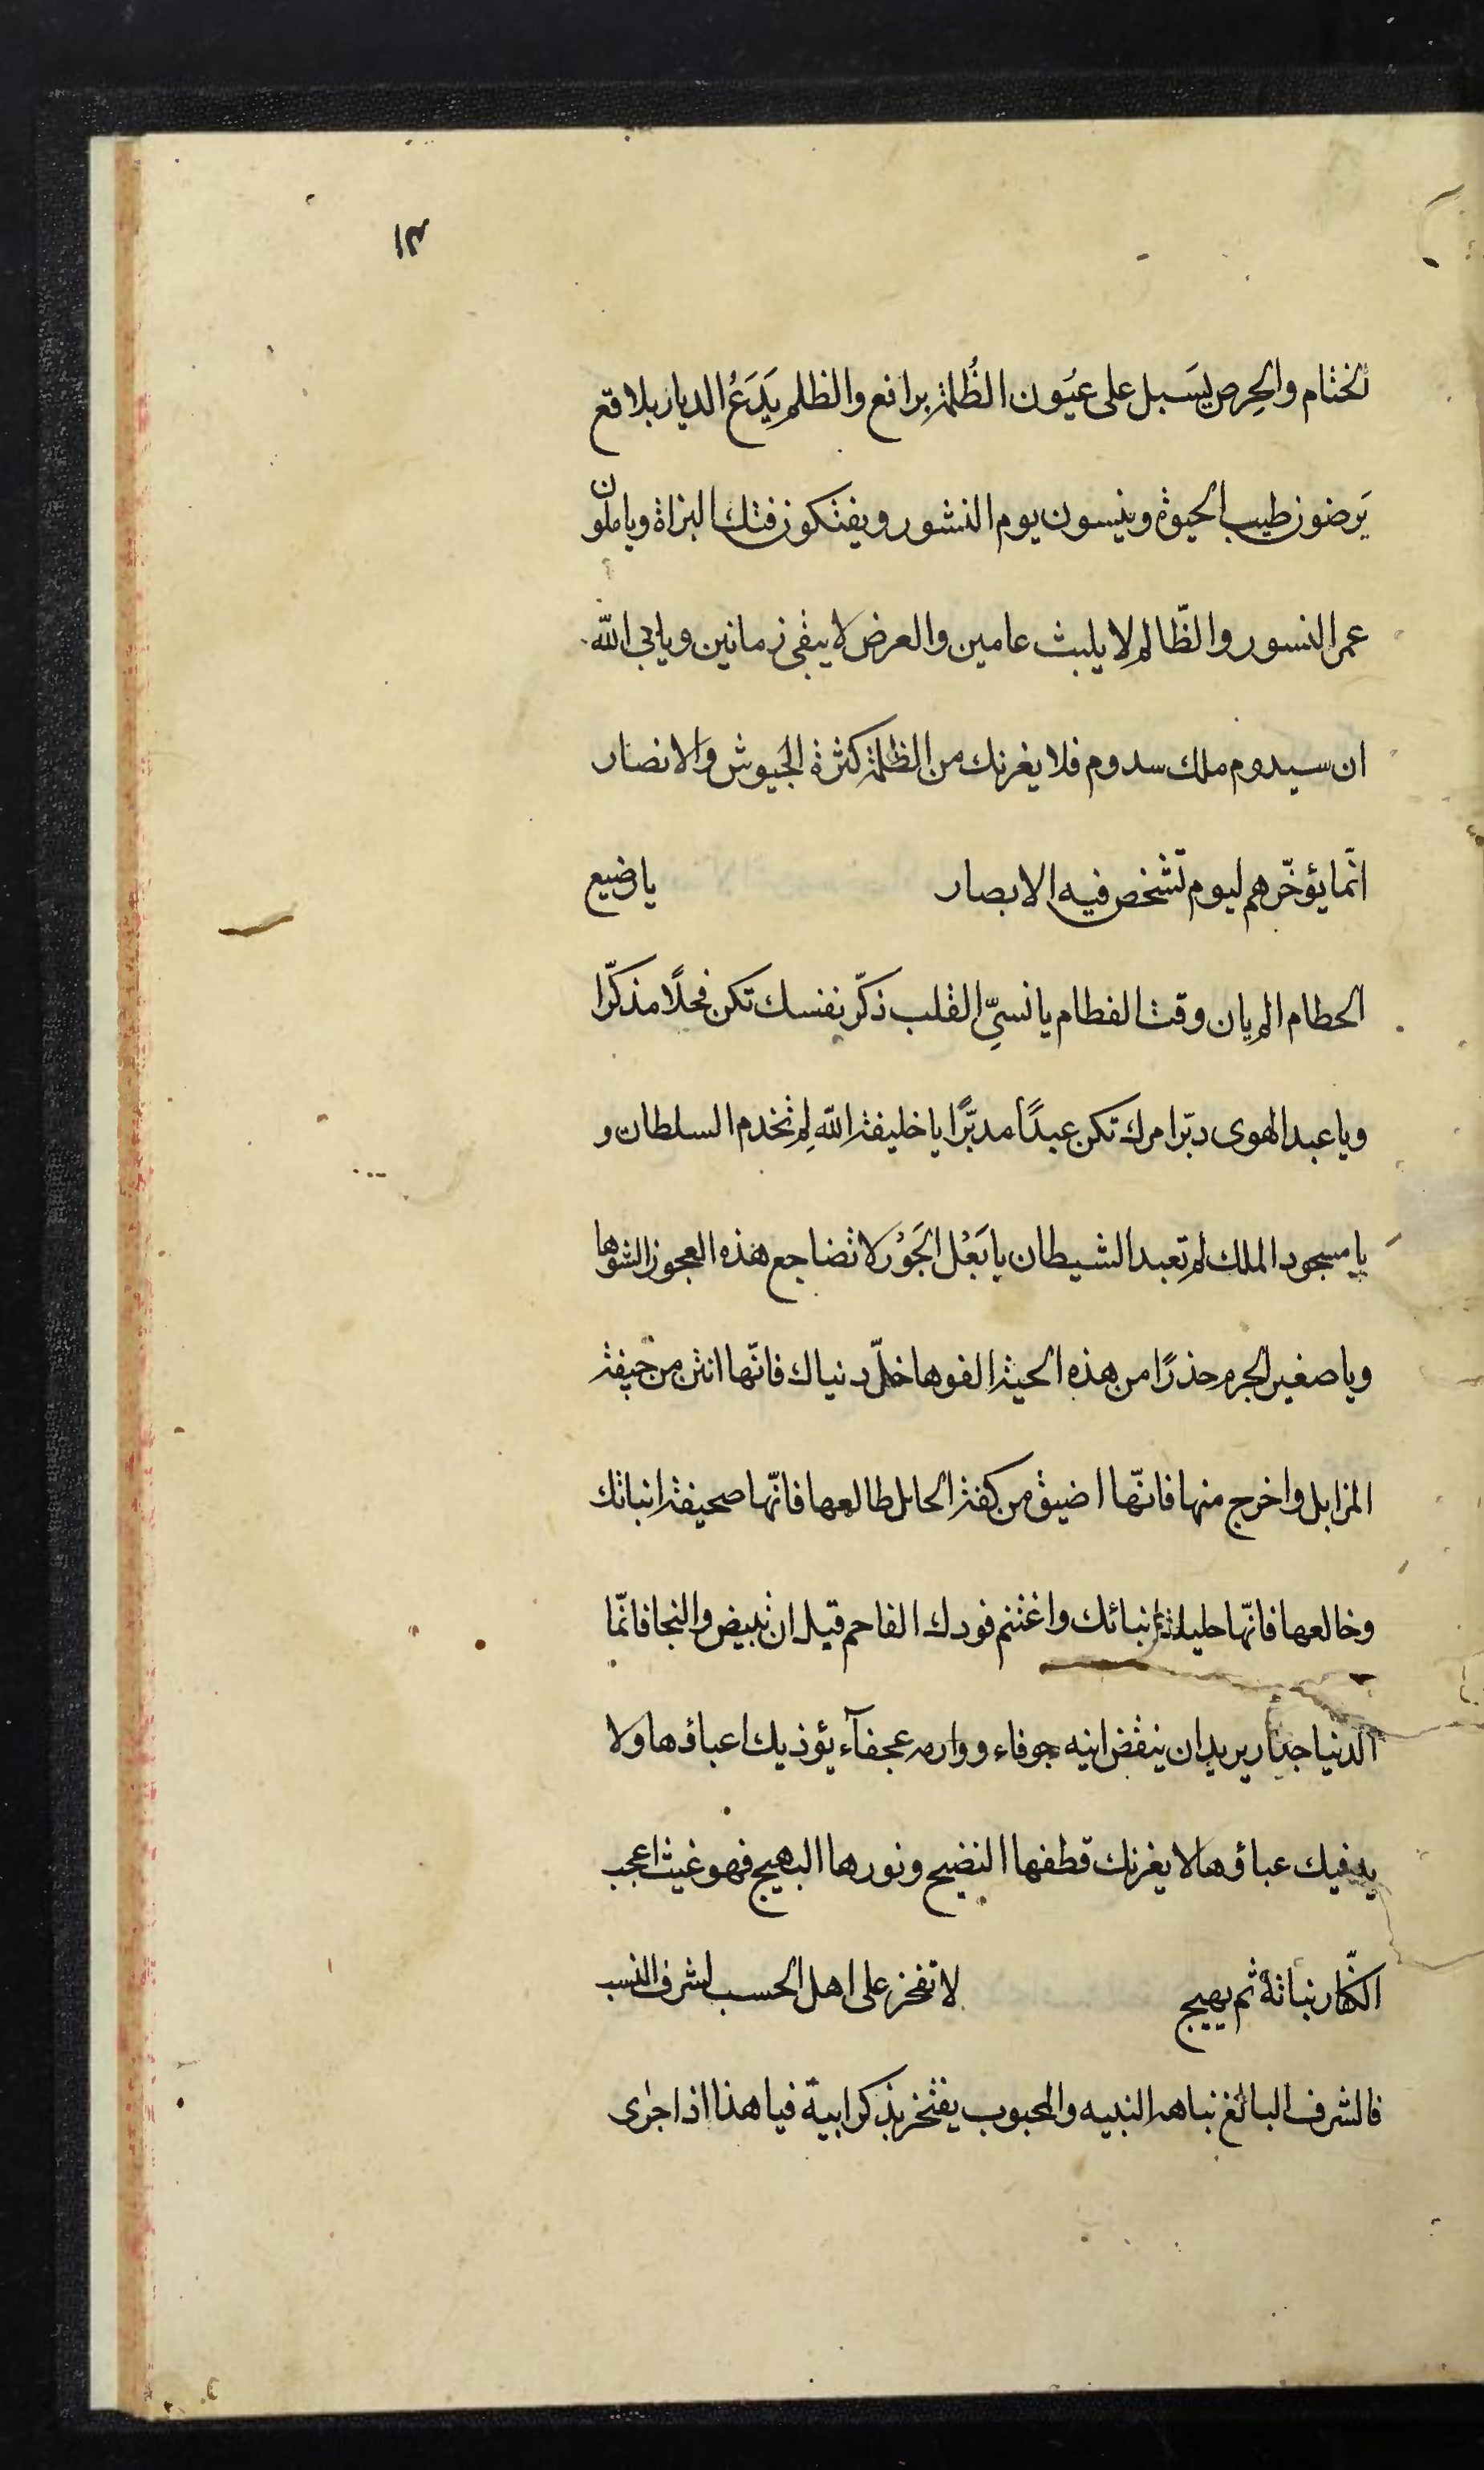 ١٣
الختام والحِرص يُسبل على عُيون الظُلمة براقع والظلم يَدَعُ الديار بلاقع
يَرضون طيب الحيوة وينسون يوم النشور ويفتكون فتك البزاة وياملون
عمر النسور والظّالم لا يلبث عامين والعرض لا يبقى زمانين ويابى الله
ان سيدوم ملك سدوم فلا يغرنك من الظلمة كثرة الجيوش والانصار
انّما يؤخّرهم ليوم تشخص فيه الابصار يا رضيع
الحطام الم يان وقت الفطام يا نسىّ القلب ذكّر نفسك تكن فحلًا مذكّرا
ويا عبد الهوى دبّر امرك تكن عبدًا مدبّرًا يا خليفة الله لِم تخدم السلطان و
يا مسجود الملك لم تعبد الشيطان يا بَعْل الجَوْر لا تضاجع هذه العجوز الشوها
ويا صغير الجرم حذرًا من هذه الحية الفوها خلّ دنياك فانّها انتن من جيفة
المزابل واخرج منها فانّها اضيق من كفة الحابل طالعها فانّها صحيفة انبائك
وخالعها فانّها حليلة انبائك واغتنم فودك الفاحم قبل ان تبيض والنجا فانّما
الدنيا جدار يريد ان ينقض انيه جوفاء وواره عجفآء يؤذيك اعباؤها ولا
يدفيك عباؤها لا يغرنك قطفها النضيج ونورها البهيج فهو غيث اعجب
الكفّار نباتهُ ثم يهيج لا تفخز على اهل الحسب لشرف النسب
فالشرف البالغ نباهة النبيه والمحبوب يفتخر بذكر ابيه فيا هذا اذا جرى